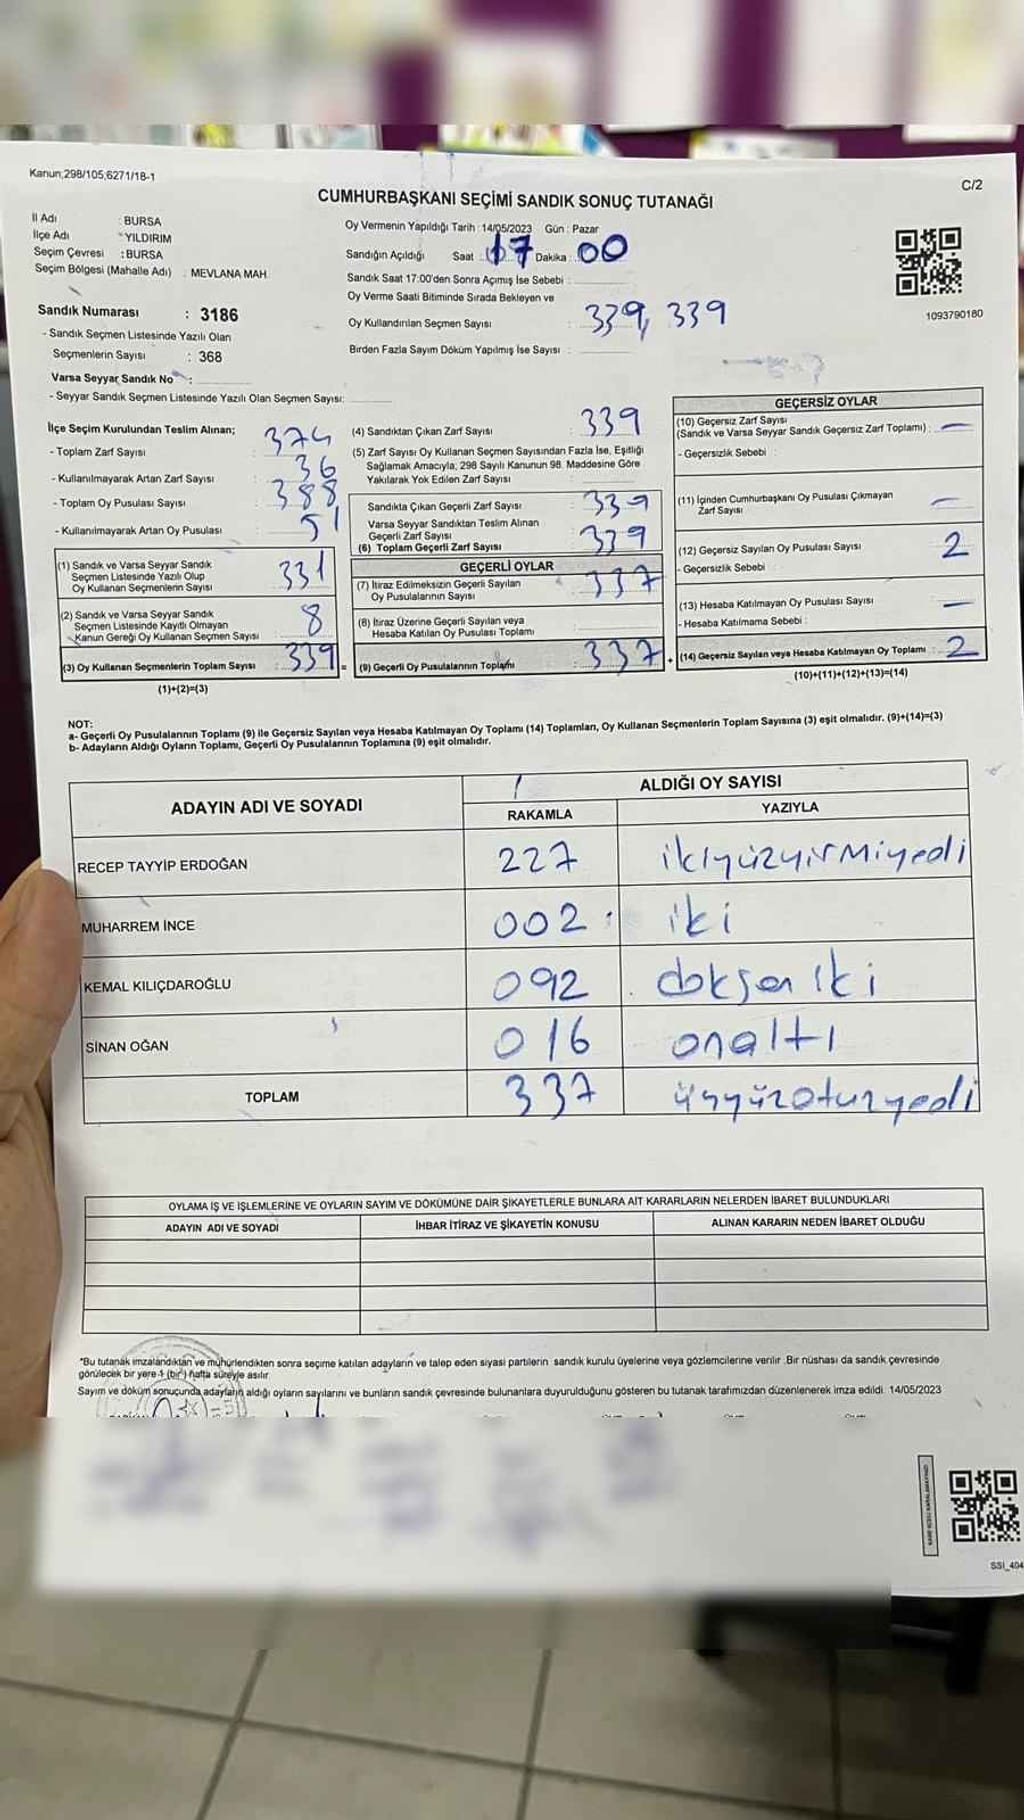 Kanun;298/105,6271/18-1
C/2
CUMHURBAŞKANI SEÇİMİ SANDIK SONUÇ TUTANAĞI
İl Adı : BURSA
İlçe Adı : YILDIRIM
Seçim Çevresi : BURSA
Seçim Bölgesi (Mahalle Adı) : MEVLANA MAH.
Sandık Numarası : 3186
- Sandık Seçmen Listesinde Yazılı Olan
Seçmenlerin Sayısı : 368
Varsa Seyyar Sandık No :
- Seyyar Sandık Seçmen Listesinde Yazılı Olan Seçmen Sayısı:
Oy Vermenin Yapıldığı Tarih : 14/05/2023 Gün : Pazar
Sandığın Açıldığı Saat : 17 Dakika : 00
Sandık Saat 17:00'den Sonra Açımış İse Sebebi :
Oy Verme Saati Bitiminde Sırada Bekleyen ve
Oy Kullandırılan Seçmen Sayısı : 339, 339
Birden Fazla Sayım Döküm Yapılmış İse Sayısı :
1093790180
İlçe Seçim Kurulundan Teslim Alınan;
- Toplam Zarf Sayısı : 374
- Kullanılmayarak Artan Zarf Sayısı : 36
- Toplam Oy Pusulası Sayısı : 388
- Kullanılmayarak Artan Oy Pusulası : 51
(1) Sandık ve Varsa Seyyar Sandık
Seçmen Listesinde Yazılı Olup
Oy Kullanan Seçmenlerin Sayısı : 331
(2) Sandık ve Varsa Seyyar Sandık
Seçmen Listesinde Kayıtlı Olmayan
Kanun Gereği Oy Kullanan Seçmen Sayısı : 8
(3) Oy Kullanan Seçmenlerin Toplam Sayısı : 339 =
(1)+(2)=(3)
(4) Sandıktan Çıkan Zarf Sayısı : 339
(5) Zarf Sayısı Oy Kullanan Seçmen Sayısından Fazla İse, Eşitliği
Sağlamak Amacıyla; 298 Sayılı Kanunun 98. Maddesine Göre
Yakılarak Yok Edilen Zarf Sayısı :
Sandıkta Çıkan Geçerli Zarf Sayısı : 339
Varsa Seyyar Sandıktan Teslim Alınan
Geçerli Zarf Sayısı :
(6) Toplam Geçerli Zarf Sayısı : 339
GEÇERLİ OYLAR
(7) İtiraz Edilmeksizin Geçerli Sayılan
Oy Pusulalarının Sayısı : 337
(8) İtiraz Üzerine Geçerli Sayılan veya
Hesaba Katılan Oy Pusulası Toplamı :
(9) Geçerli Oy Pusulalarının Toplamı : 337 +
GEÇERSİZ OYLAR
(10) Geçersiz Zarf Sayısı
(Sandık ve Varsa Seyyar Sandık Geçersiz Zarf Toplamı) : —
- Geçersizlik Sebebi :
(11) İçinden Cumhurbaşkanı Oy Pusulası Çıkmayan
Zarf Sayısı : —
(12) Geçersiz Sayılan Oy Pusulası Sayısı : 2
- Geçersizlik Sebebi :
(13) Hesaba Katılmayan Oy Pusulası Sayısı : —
- Hesaba Katılmama Sebebi :
(14) Geçersiz Sayılan veya Hesaba Katılmayan Oy Toplamı : 2
(10)+(11)+(12)+(13)=(14)
NOT:
a- Geçerli Oy Pusulalarının Toplamı (9) ile Geçersiz Sayılan veya Hesaba Katılmayan Oy Toplamı (14) Toplamları, Oy Kullanan Seçmenlerin Toplam Sayısına (3) eşit olmalıdır. (9)+(14)=(3)
b- Adayların Aldığı Oyların Toplamı, Geçerli Oy Pusulalarının Toplamına (9) eşit olmalıdır.
ADAYIN ADI VE SOYADI ALDIĞI OY SAYISI
RAKAMLA YAZIYLA
RECEP TAYYİP ERDOĞAN 227 ikiyüzyirmiyedi
MUHARREM İNCE 002 iki
KEMAL KILIÇDAROĞLU 092 doksan iki
SİNAN OĞAN 016 onaltı
TOPLAM 337 üçyüzotuzyedi
OYLAMA İŞ VE İŞLEMLERİNE VE OYLARIN SAYIM VE DÖKÜMÜNE DAİR ŞİKAYETLERLE BUNLARA AİT KARARLARIN NELERDEN İBARET BULUNDUKLARI
ADAYIN ADI VE SOYADI İHBAR İTİRAZ VE ŞİKAYETİN KONUSU ALINAN KARARIN NEDEN İBARET OLDUĞU
*Bu tutanak imzalandıktan ve mühürlendikten sonra seçime katılan adayların ve talep eden siyasi partilerin sandık kurulu üyelerine veya gözlemcilerine verilir. Bir nüshası da sandık çevresinde
görülecek bir yere 1 (bir) hafta süreyle asılır
Sayım ve döküm sonuçunda adayların aldığı oyların sayılarını ve bunların sandık çevresinde bulunanlara duyurulduğunu gösteren bu tutanak tarafımızdan düzenlenerek imza edildi. 14/05/2023
SSI_404